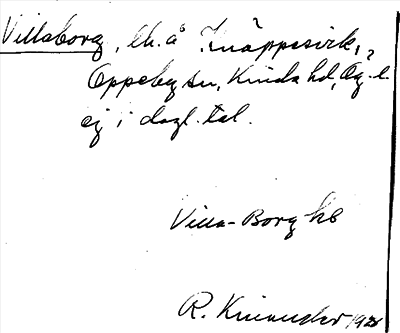 Villaborg, lh. å Knäppesvik,
Oppeby sn, Kinda hd, Ög. l.
ej i dagl. tal.
Villa-Borg kb
R. Kinander 192